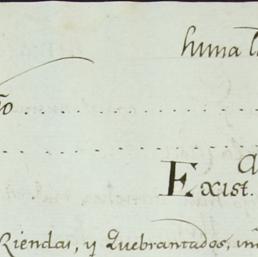 huma
ño
Exist.
Riendas, y Quebrantados,